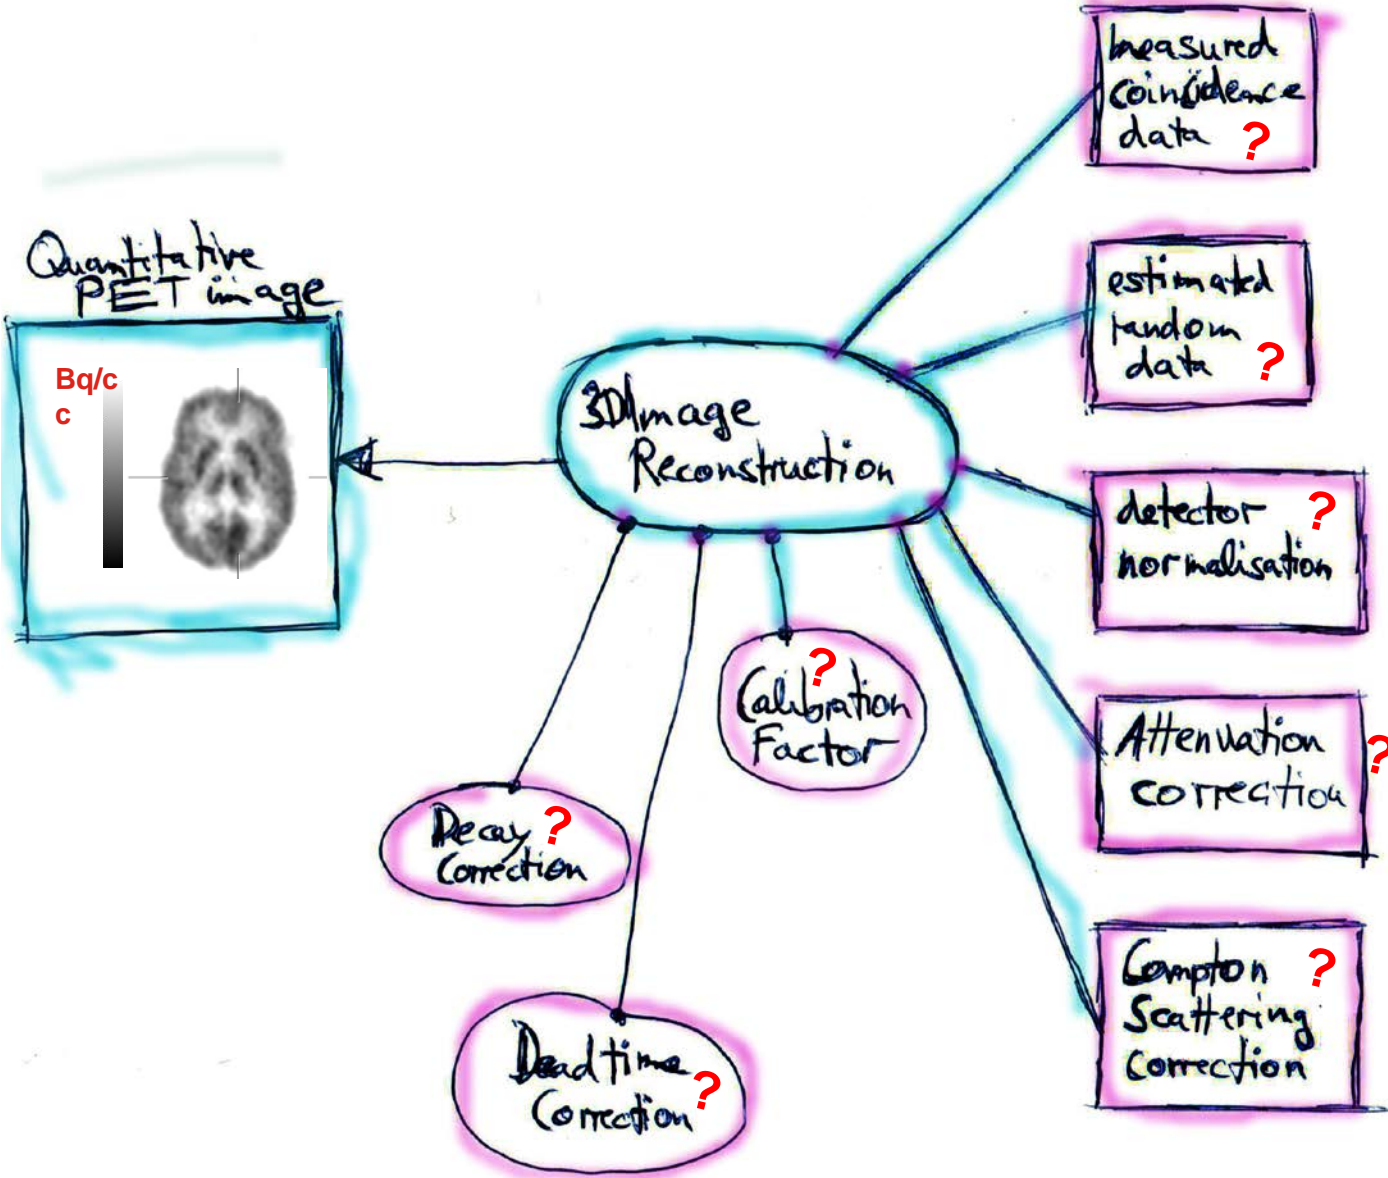 Quantitative
PET image
Bq/c
c
3D Image
Reconstruction
measured
coincidence
data ?
estimated
random
data ?
detector ?
normalisation
Attenuation ?
correction
Compton ?
Scattering
correction
?
Calibration
Factor
Decay ?
Correction
Deadtime
Correction ?